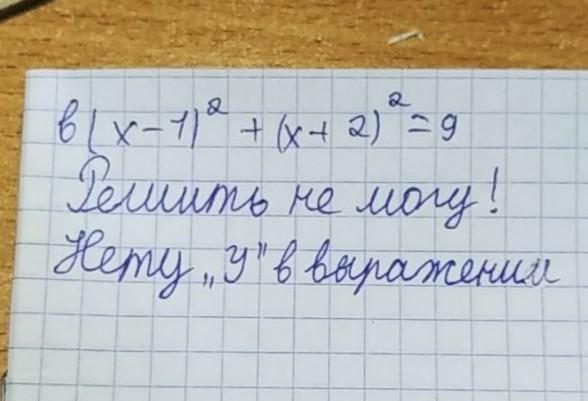 в (x-1)² + (x+2)² = 9
Решить не могу!
Нету „У" в выражении